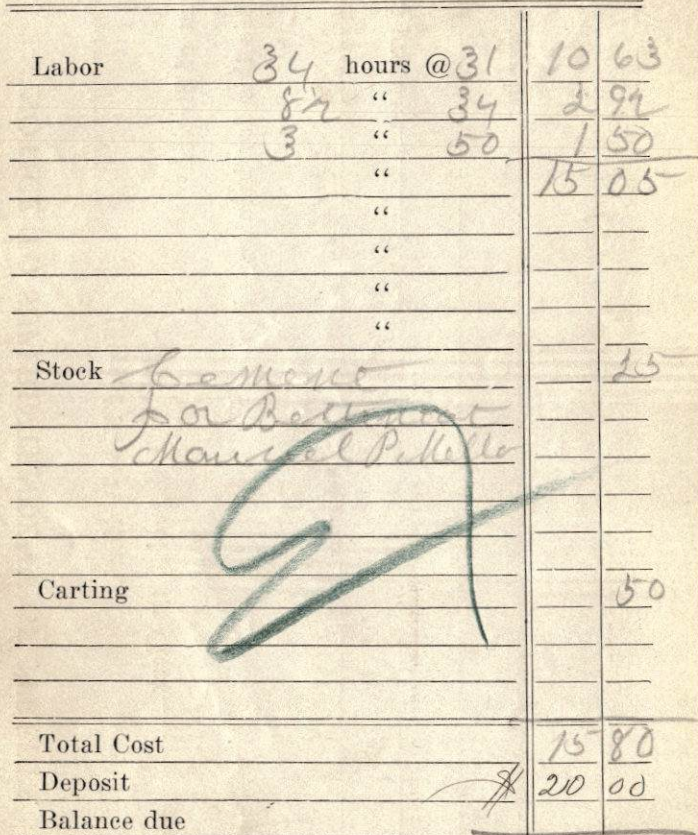 Labor 34 hours @ 31 10 63
8½ “ 34 2 92
3 “ 50 1 50
“ 15 05
“
“
“
“
Stock Cement 25
for Basement
Manuel P. Mello
Carting 50
Total Cost 15 80
Deposit $ 20 00
Balance due